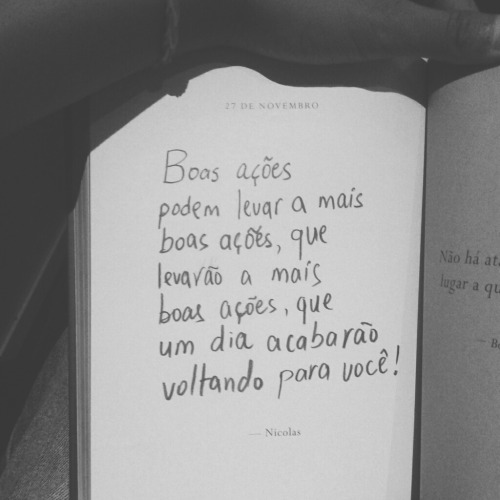 27 DE NOVEMBRO
Boas ações
podem levar a mais
boas ações, que
levarão a mais
boas ações, que
um dia acabarão
voltando para você!
— Nicolas
Não há
lugar a